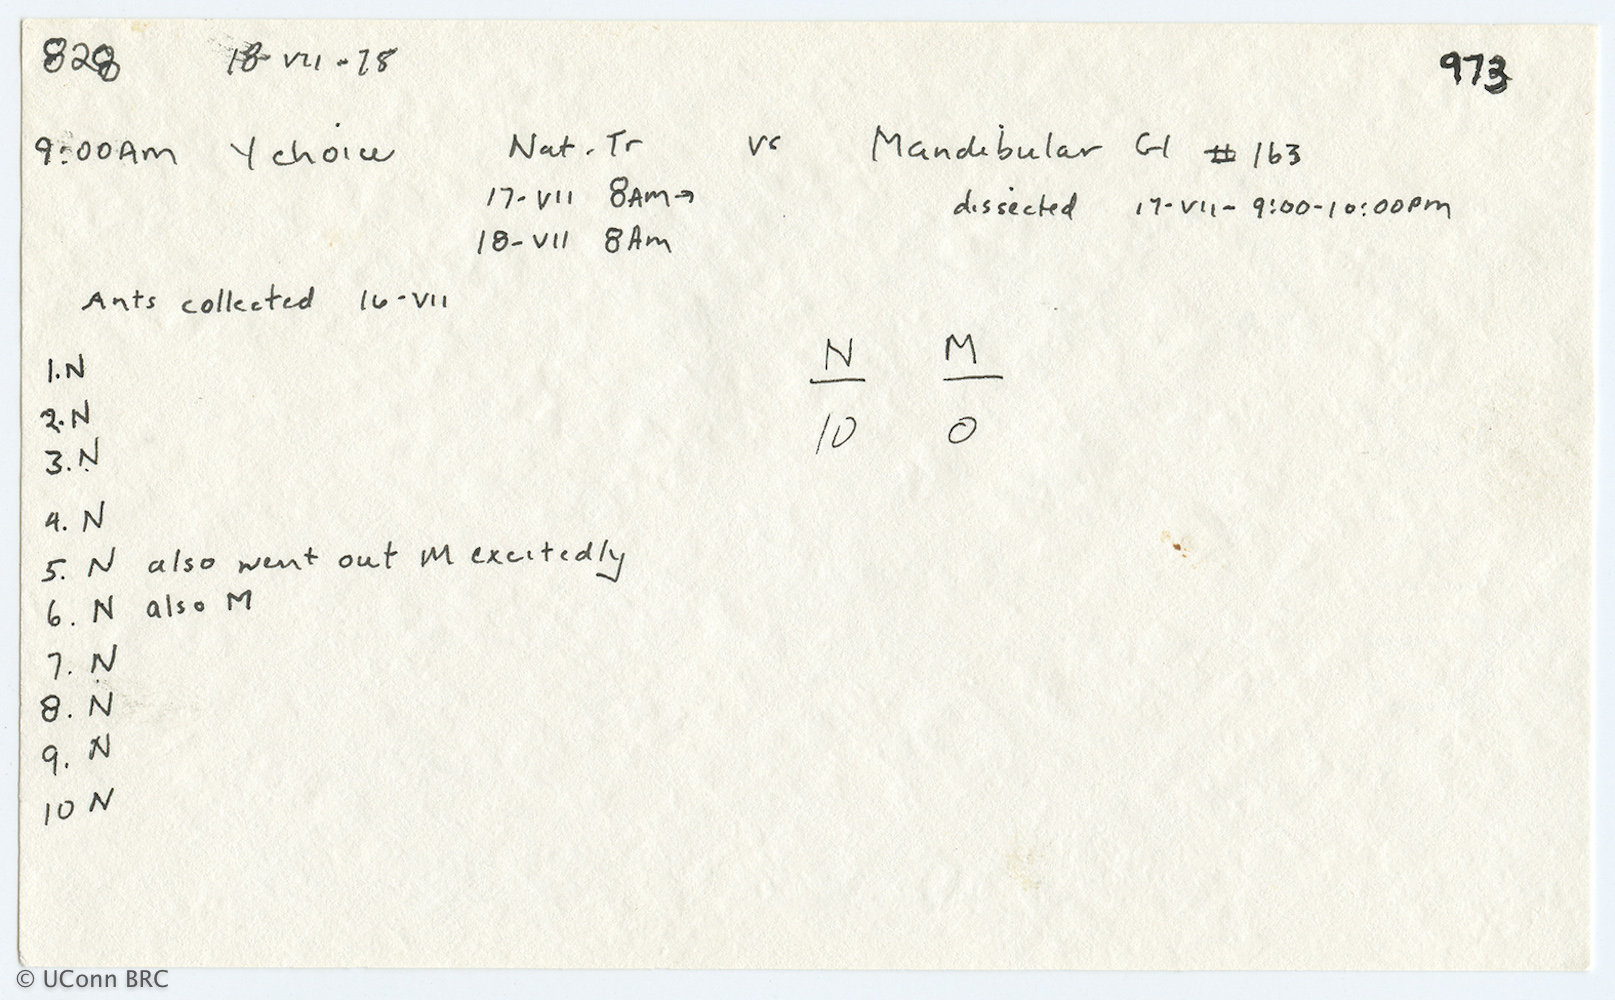 828 18-VII-78 973
9:00AM Y choice Nat. Tr vs Mandibular Gl # 163
17-VII 8AM→ dissected 17-VII- 9:00-10:00PM
18-VII 8AM
Ants collected 16-VII
N M
1. N
2. N
10 0
3. N
4. N
5. N also went out M excitedly
6. N also M
7. N
8. N
9. N
10 N
© UConn BRC